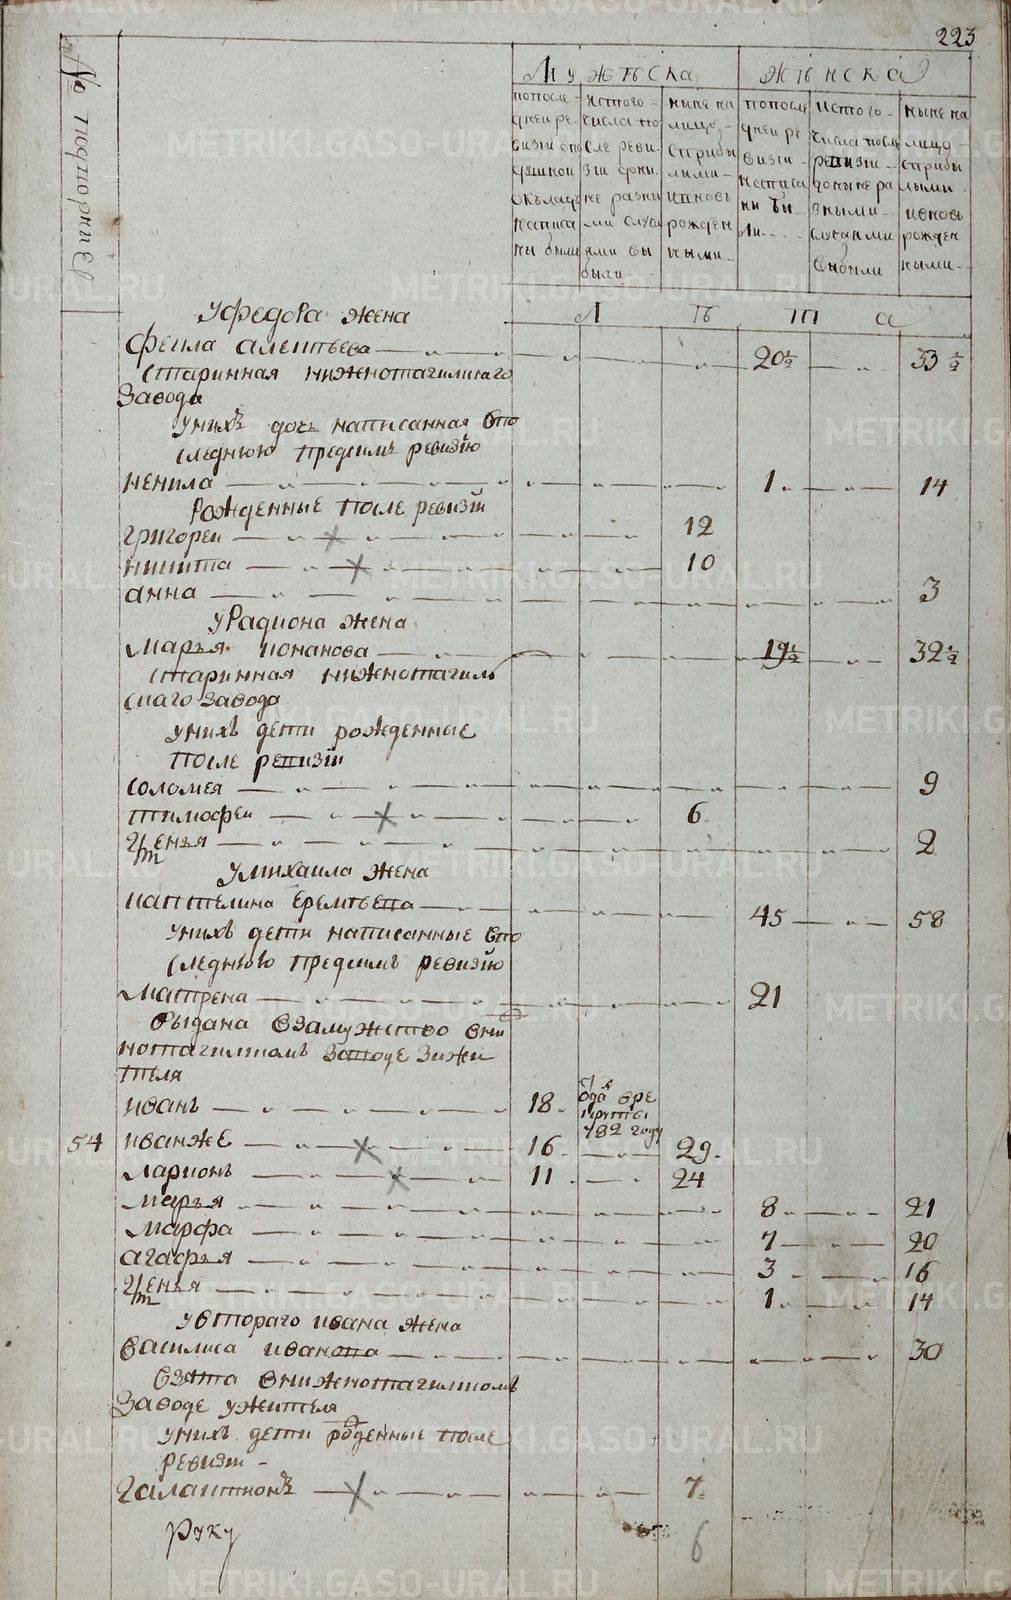 223
№ подворныя
Мужеска
Женска
попосле-
дней ре-
визии впо
душной
окладъ
написа
ны были
истого-
числа по
сле реви-
зии доны
не разны
ми случа
ями вы
были
ныне на
лицо-
сприбы
лыми-
ивновь
рожден
ными
попосле
дней ре
визии-
написа
ны бы
ли
истого-
числа после
ревизии-
доныне ра
зными-
случаями
выбыли
ныне на
лицо-
сприбы
лыми
ивновь
рожден
ными
Лета
уфедора жена
Фекла алентьева 20½ 33½
старинная нижнотагилскаго
завода
унихъ дочь написанная впо
следнюю предсимъ ревизию
ненила 1 14
Рожденные после ревизии
григореи 12
никита 10
анна 3
уРадиона жена
Марья романова 19½ 32½
старинная нижнотагиль
скаго завода
унихъ дети рожденные
после ревизии
соломея 9
тимофеи 6
устенья 2
умихаила жена
каптелина еремеева 45 58
унихъ дети написанные впо
следнюю предсимъ ревизию
Матрена 21
выдана взамужство вни
нотагилскомъ заводе зажи
теля
иванъ 18
одаⷩ вре
круты
782 году
54 иванже 16 29
Ларионъ 11 24
Марья 8 21
Марфа 7 20
агафья 3 16
устенья 1 14
увтораго ивана жена
василиса иванова 30
взята внижнотагилскомъ
заводе ужителя
унихъ дети рожденные после
ревизии
галактионъ 7
руку
6
METRIKI.GASO-URAL.RU